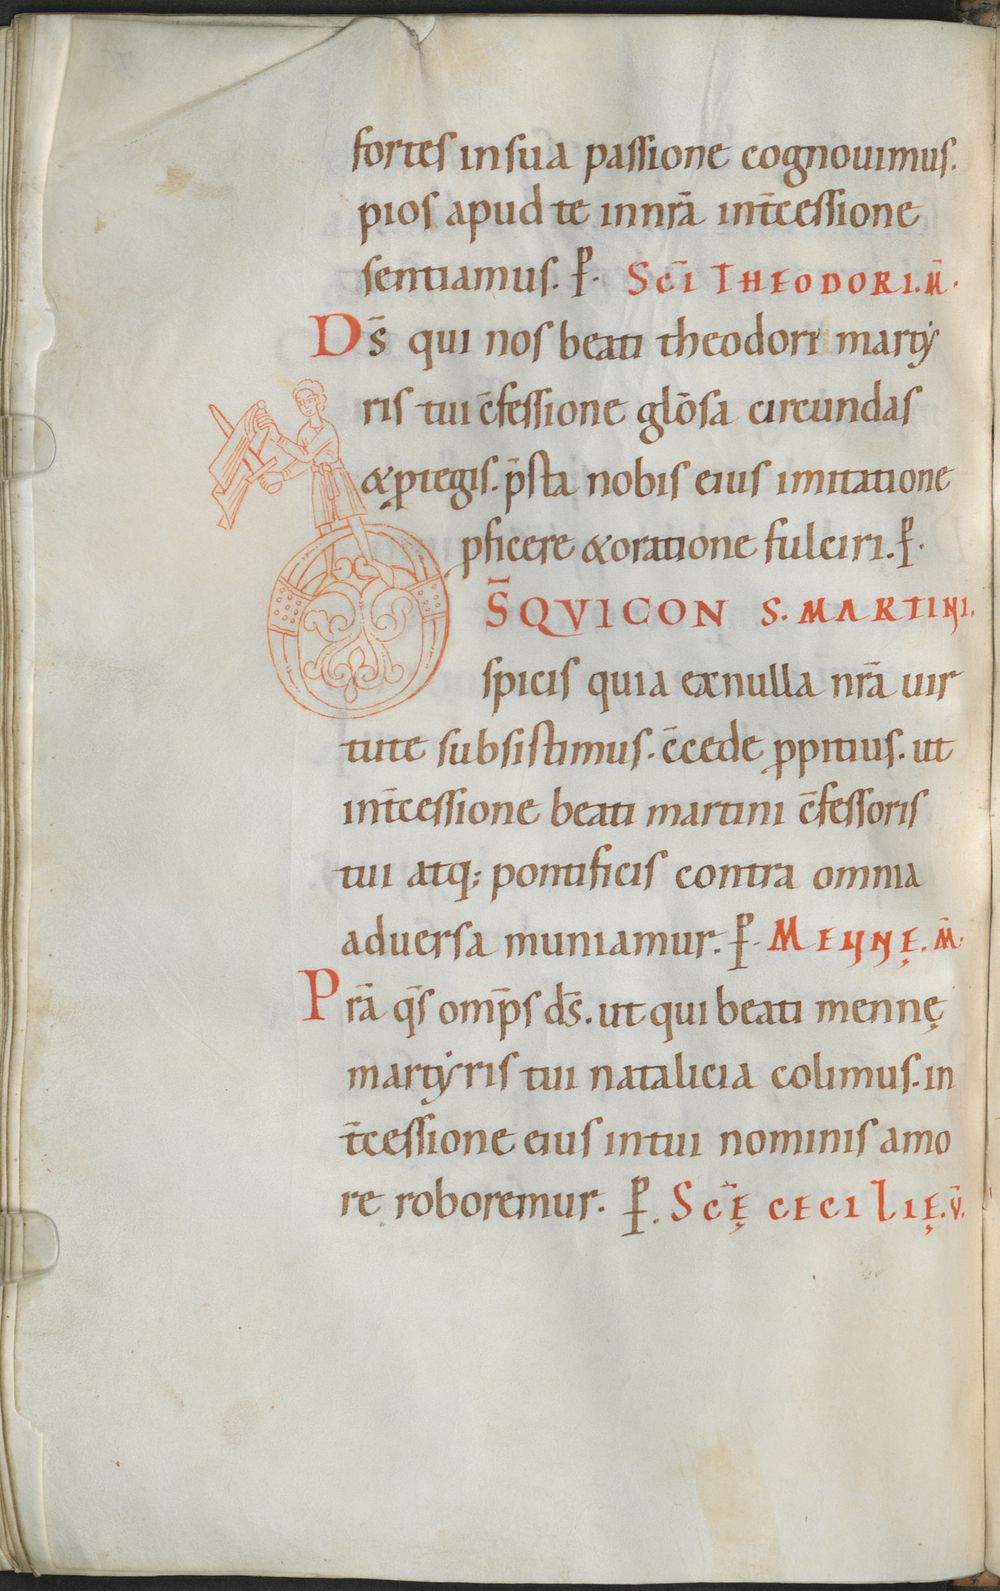 fortes insua passione cognouimus.
pios apud te innr̄a int̄cessione
sentiamus. P̱. SC̄I THEODORI.M̄.
Ds̄ qui nos beati theodori marty
ris tui c̄fessione glōsa circundas
&ꝓtegis. p̄sta nobis eius imitatione
ꝓficere &oratione fulciri. P̱.
S̄ QVICON S. MARTINI.
spicis quia exnulla nr̄a uir
tute subsistimus. c̄cede ꝓpitius. ut
int̄cessione beati martini c̄fessoris
tui atq; pontificis contra omnia
aduersa muniamur. P̱. MENNĘ. M̄.
Pr̄a qs̄ omp̄s ds̄. ut qui beati mennę
martyris tui natalicia colimus. in
t̄cessione eius intui nominis amo
re roboremur. P̱. SC̄Ę CECILIĘ. V̄.